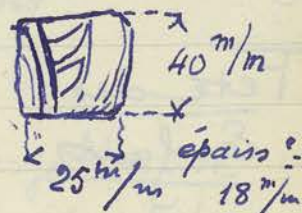 40 m/m
25 m/m
épaiss^r
18 m/m